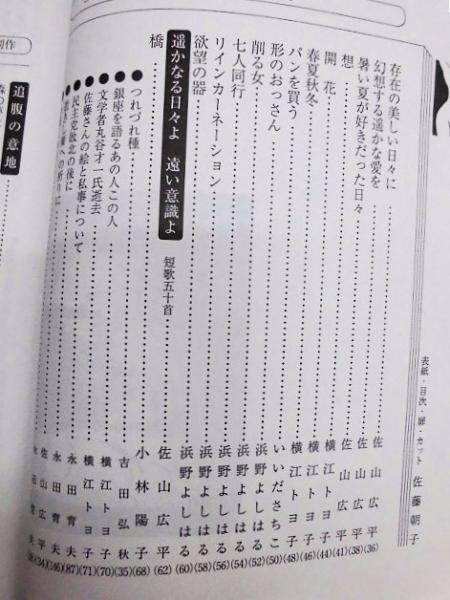 表紙・目次・扉・カット 佐藤朝子
存在の美しい日々に 佐山広平 (36)
幻想する遥かな愛を 佐山広平 (38)
暑い夏が好きだった日々 佐山広平 (41)
想 横江トヨ子 (44)
開花 横江トヨ子 (46)
春夏秋冬 横江トヨ子 (48)
パンを買う いいださちこ (50)
形のおっさん 浜野よしはる (52)
削る女 浜野よしはる (54)
七人同行 浜野よしはる (56)
リインカーネーション 浜野よしはる (58)
欲望の器 浜野よしはる (60)
遥かなる日々よ 遠い意識よ 短歌五十首 佐山広平 (62)
橋 小林陽子 (68)
●つれづれ種 吉田弘秋 (35)
●銀座を語るあの人この人 横江トヨ子 (70)
●文学者丸谷才一氏逝去 横江トヨ子 (71)
●佐藤さんの絵と私事について 永田育夫 (87)
●民主党敗北の後に 永田育夫 (46)
への祈りに 佐山広平 (34)
追腹の意地